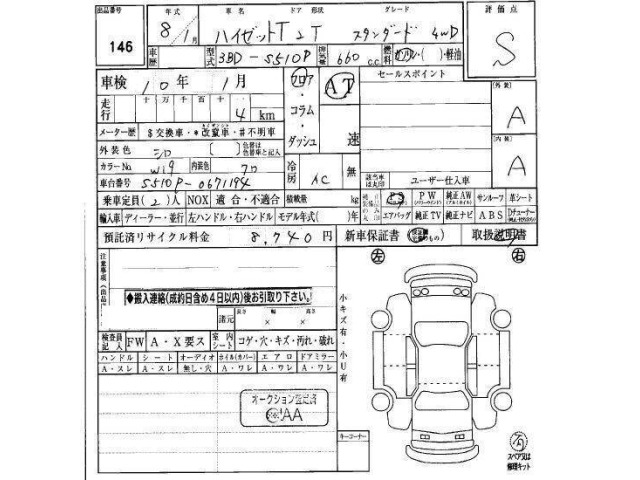 出品番号 年式 車名 ドア 形状 グレード 評価点
146 8/1月 ハイゼットT 2T スタンダード 4WD S
車歴 型式 3BD-S510P 排気量 660 cc 燃料 ガソリン・( )・軽油
車検 10年 1月 フロア・コラム・ダッシュ AT 速 セールスポイント 外装 A
走行 十万 万 千 百 十
4 km
メーター歴 $交換車・*改竄車・#不明車 内装 A
外装色 シロ 〔 〕 色替は色替車と記入
カラーNo. W19 内装色 クロ 冷房 AC 無 該当車は丸印 ユーザー仕入車
車台番号 S510P-0671194
乗車定員(2)人 NOX 適合・不適合 積載量 kg PS PW 純正AW サンルーフ 革シート
輸入車 ディーラー・並行 左ハンドル・右ハンドル モデル年式( )年 エアバッグ 純正TV 純正ナビ ABS Dチューナー
預託済リサイクル料金 8,740円 新車保証書 取扱説明書
注意事項(出品店) 左 右
◆搬入連絡(成約日含め4日以内)後お引取り下さい。
諸元 長さ 幅 高さ
× ×
小キズ有・小U有
検査員記入 FW A・X要ス 室内シート コゲ・穴・キズ・汚れ・破れ
ハンドル シート オーディオ ホイル(カバー) エアロ ドアミラー
A・スレ A・スレ 無し・穴 A・ワレ A・ワレ A・ワレ
オークション鑑定済
AA
キーコーナー
スペア又は
修理キット